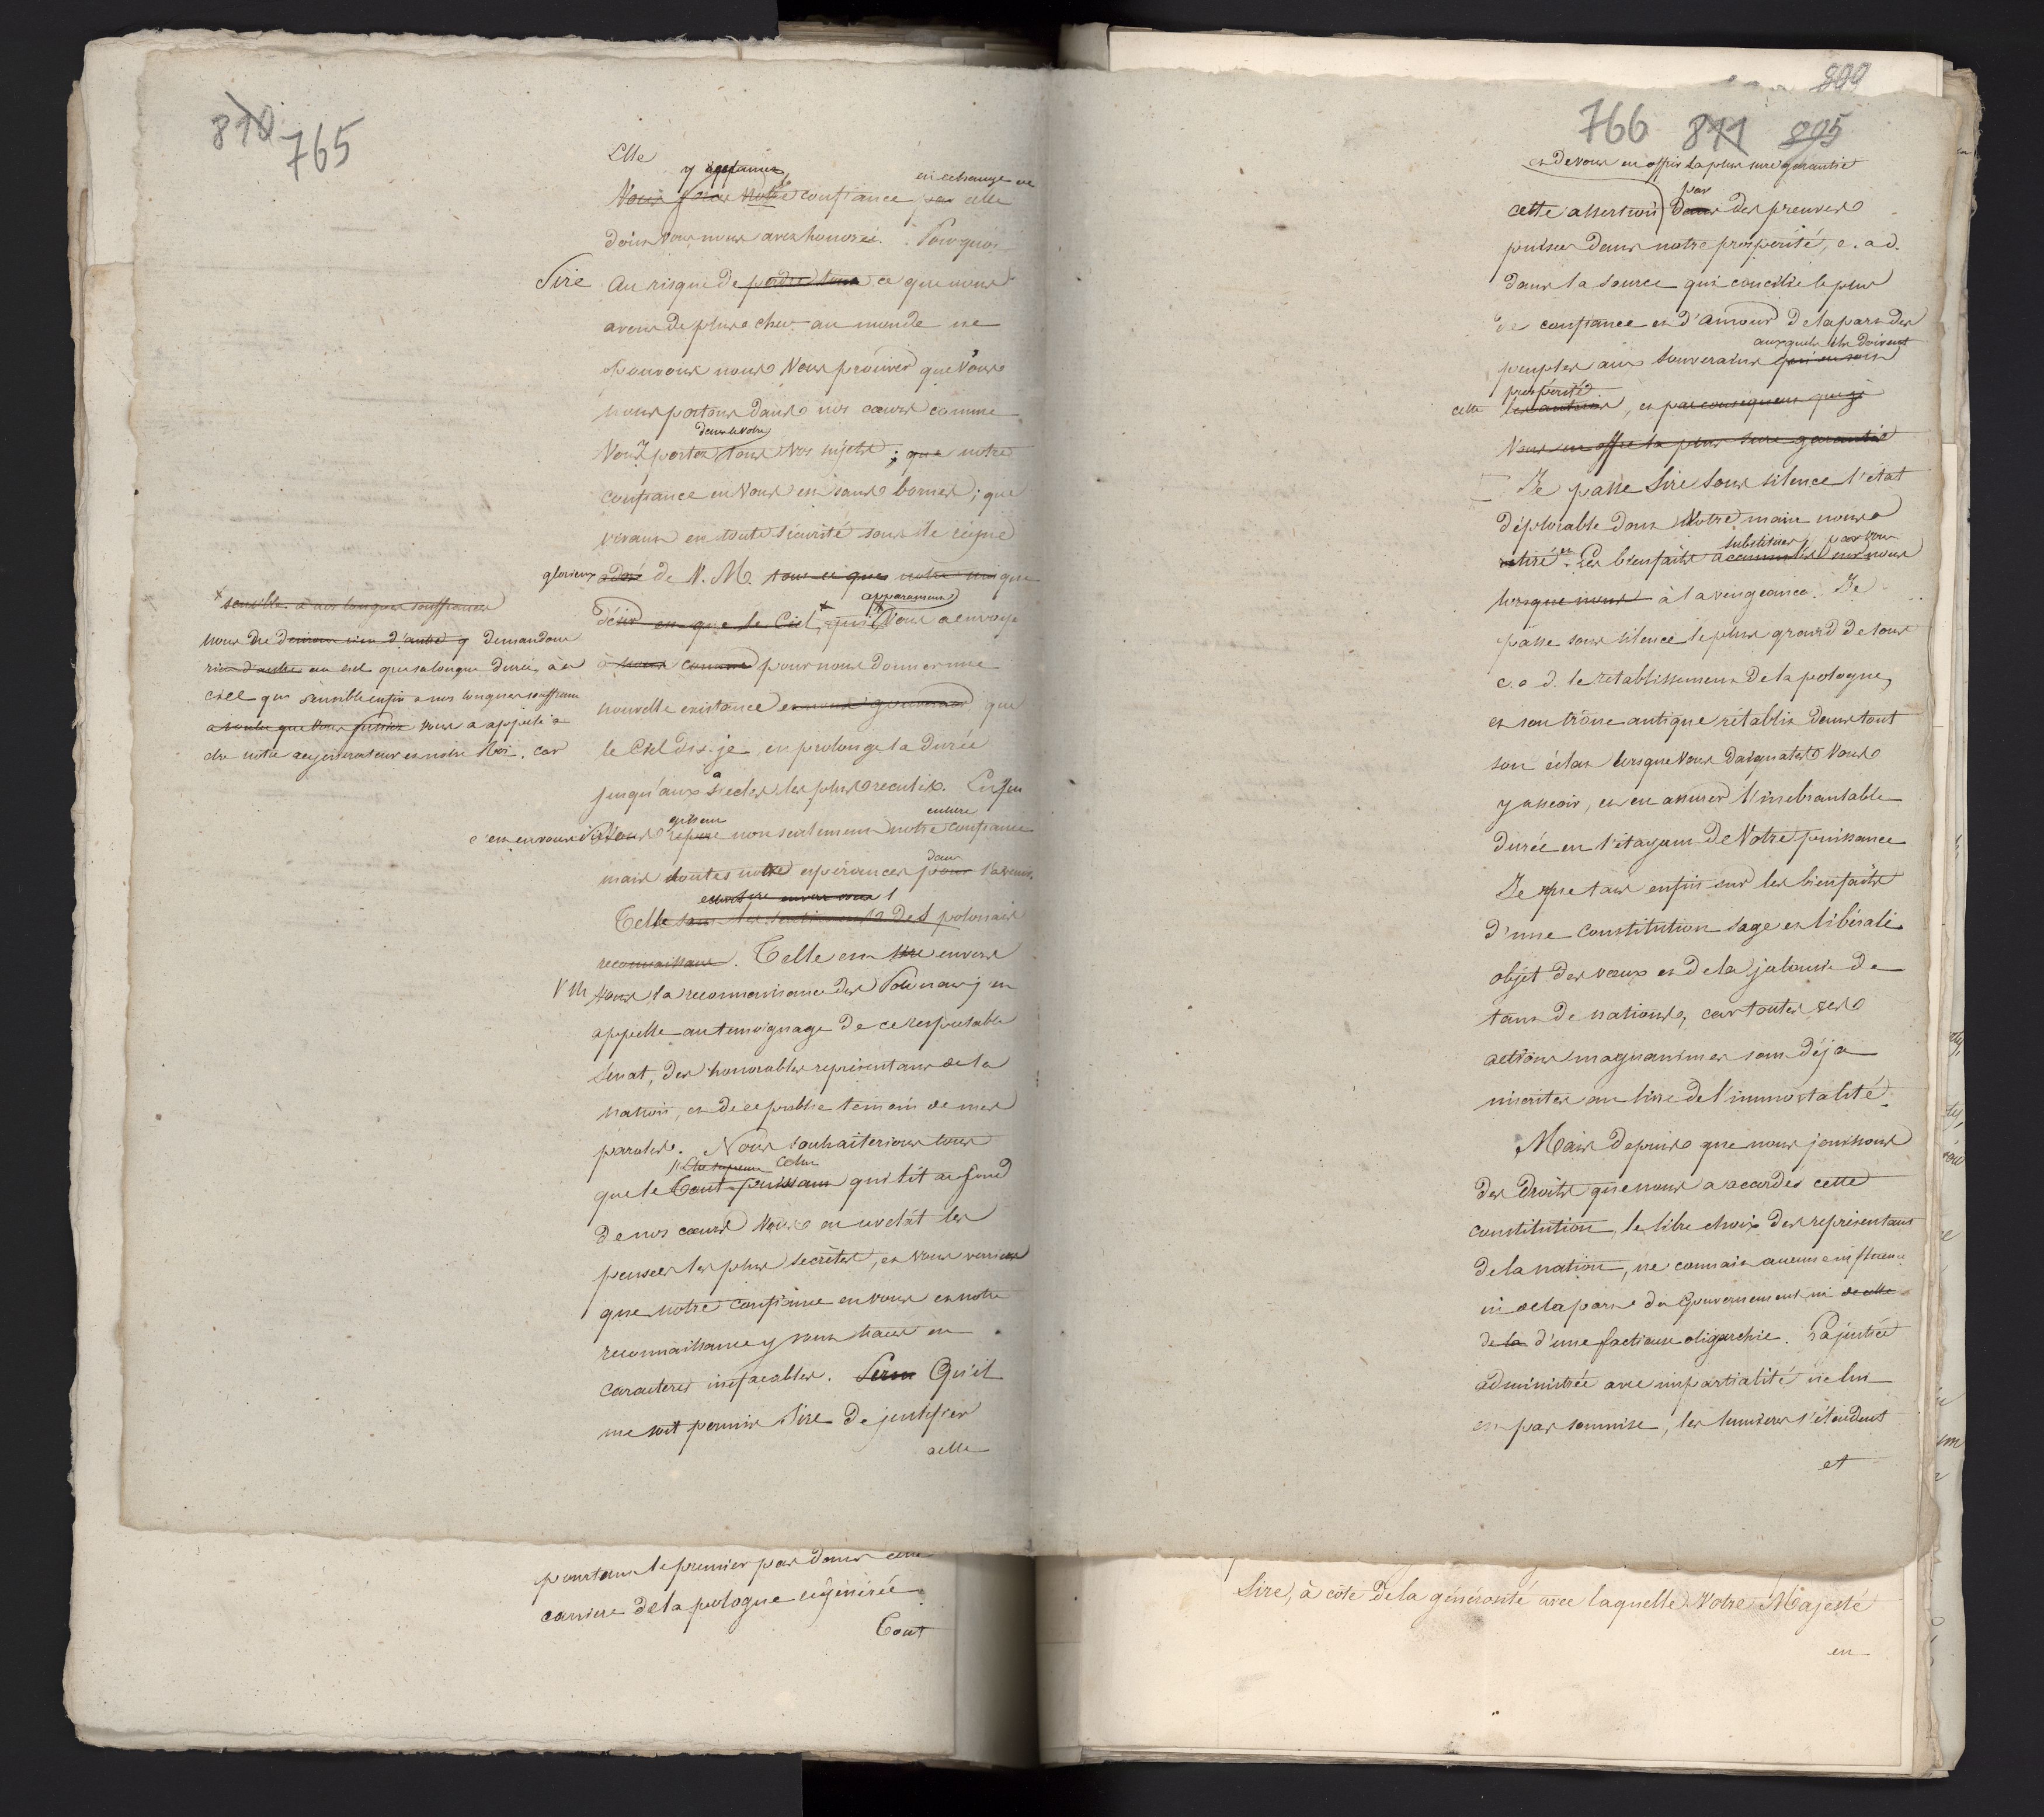 810 765
Elle
y
en echange de
notre confiance par celle
dont Vous nous avez honorés. Pourquoi
Sire Au risque de perdre tout ce que nous
avons de plus cher au monde ne
pouvons nous Vous prouver que Vous
nous portons dans nos cœurs comme
dans le Votre
Vous portez tous Vos sujets ; que notre
confiance en Vous est sans bornes ; que
vivant en toute sécurité sous le règne
glorieux de V. M. tout ce que notre unique
apparament
désir est que le Ciel, qui Vous a envoyé
pour nous donner une
nouvelle existence et nous gouverner que
le Ciel dis-je, en prolonge la durée
jusqu'aux siecles les plus reculés. Enfin
c'est en vous que gissent encore
Vous repose non seulement notre confiance
dans
mais toutes nos espérances pour l'avenir.
Telle sont les sentiments des polonais
reconnaissans. Telle est Sire envers
V M Vous la reconnaissance des Polonais j'en
appelle au temoignage de ce respectable
Sénat, des honorables représentans de la
nation, et de ce public temoin de mes
paroles. Nous souhaiterions tous
l'Etre supreme Celui
que le Tout-puissant qui lit au fond
de nos cœurs Vous en revelât les
pensées les plus secrètes, et Vous verriez
que notre confiance en vous et notre
reconnaissance y sont tracés en
caracteres inefaçables. Qu'il
me soit permis Sire de justifier
cette
+ sensible à nos longues souffrances
nous ne desirons rien d'autre y demandons
rien d'autre au ciel que sa longue durée, à ce
ciel qui sensible enfin a nos longues souffrances
a voulu que Vous fussiez Vous a appellé à
etre notre regénérateur et notre Roi. Car
pourtant le premier pas dans cette
carriere de la pologne régénérée
Tout
809
766 811 805
et de Vous en offrir la plus sure garantie
par
cette assertion Dans des preuves
puisées dans notre prosperité, c. a d.
dans la source qui concilie le plus
de confiance et d'amour de la part des
auxquels ils doivent
peuples aux souverains qui en sont
prosperité.
cette les auteurs, et par consequent que je
Vous en offre la plus sure garantie
Je passe Sire sous silence l'état
déplorable dont Votre main nous a
substitués par vous
retiré et les bienfaits accumulés sur nous
lorsque nous à la vengeance. Je
passe sous silence le plus grand de tous
c. a d. le retablissement de la pologne,
et son trône antique rétabli dans tout
son éclat lorsque Vous daignates Vous
y asseoir, et en assurer l'inebranlable
durée en l'étayant de Votre puissance
Je me tais enfin sur les bienfaits
d'une constitution sage et libérale
objet des vœux et de la jalousie de
tant de nations, car toutes ces
actions magnanimes sont déja
inscrites au livre de l'immortalité.
Mais depuis que nous jouissons
des droits que nous a accordés cette
constitution, le libre choix des représentans
de la nation, ne connait aucune influence
ni de la part du Gouvernement ni de celle
de la d'une factieuse oligarchie. La justice
administrée avec impartialité ne lui
est pas soumise, les lumieres s'étendent
et
Sire, à coté de la générosité avec laquelle Votre Majesté
en